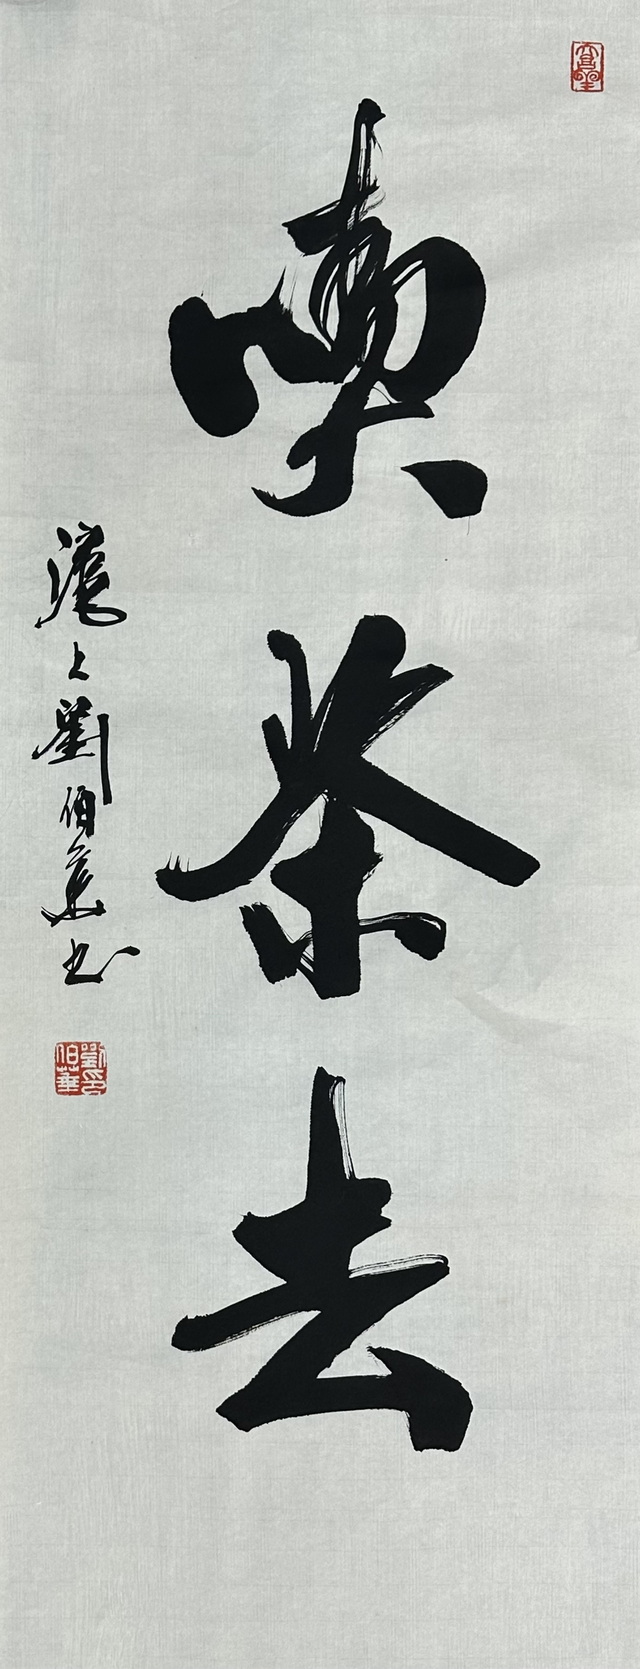 喫茶去
滬上劉伯華书
劉印伯華